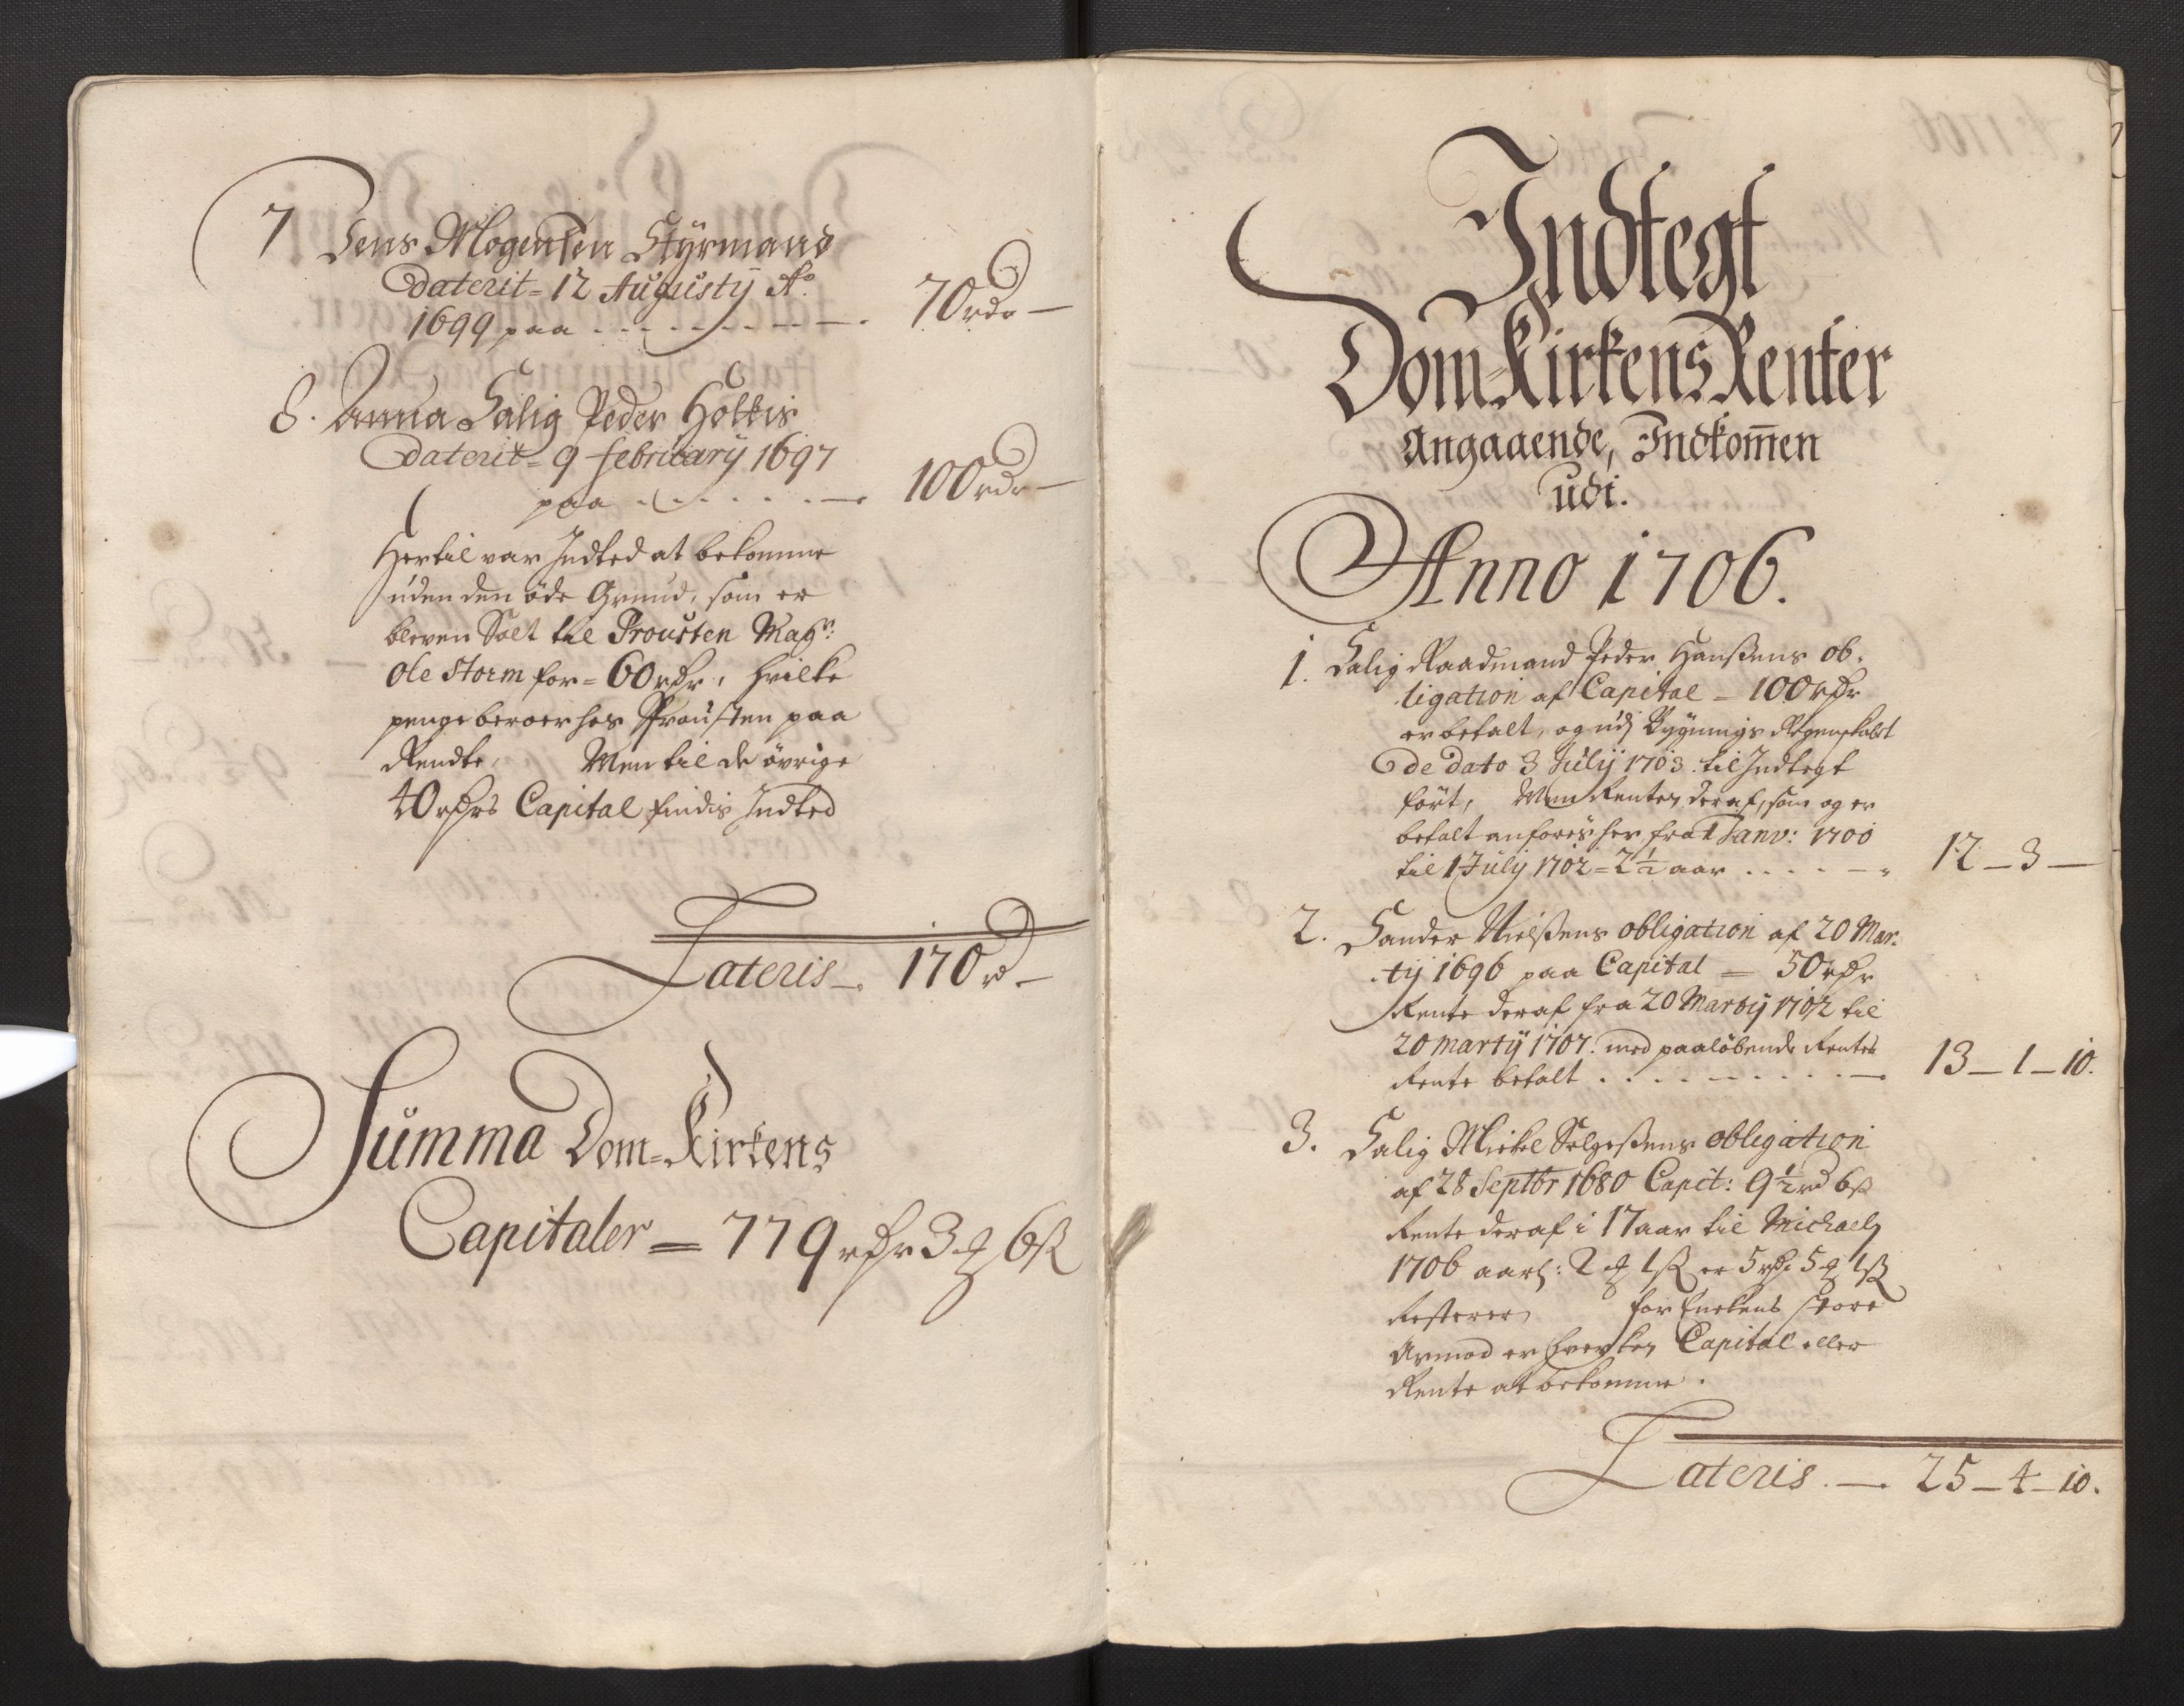 7 Jens Mogensen Styrmand
daterit = 12 Augusty Ao.
1699 paa . . . . . . . . 70 rdr —
8. Anna Salig Peder Holtis
daterit = 9 february 1697
paa . . . . . . . 100 rdr —
Hertil var Indted at bekomme
uden den öde Grund, som er
bleven Solt til Prousten Magr:
Ole Storm for = 60 rdr, hvilke
penge beroer hos Prousten paa
Rendte, Men til de övrige
40 rdrs Capital findis Indted
Lateris — 170 rd —
Summa Dom-Kirkens
Capitaler = 779 rdr 3 ℳ 6 ß
Indtegt
Dom-Kirkens Renter
Angaaende, Indkom̅en
udi.
Anno 1706.
1. Salig Raadmand Peder Hanßens ob-
ligation af Capital = 100 rdr
er betalt, og udj Bygnings Regenskabet
de dato 3 Julij 1703. til Indtegt
fört, Men Renten deraf, som og er
betalt anföres her fra 1 Janv: 1700
til 1 July 1702 = 2 1/2 aar . . . . . 12 — 3 —
2. Sander Nielßens obligation af 20 Mar-
tij 1696 paa Capital = 50 rdr
Rente deraf fra 20 Martij 1702 til
20 martij 1707. med paalöbende Rentes
Rente betalt . . . . . . . . 13 — 1 — 10.
3. Salig Mickel Helgeßens obligation
af 28 Septbr 1680 Capit: 9 1/2 rd 6 ß
Rente deraf i 17 aar til Michaelj
1706 aarl: 2 ℳ 1 ß er 5 rdr 5 ℳ 1 ß
Resterer, for Enckens store
Armod er hverken Capital eller
Rente at bekomme.
Lateris. — 25 — 4 — 10.